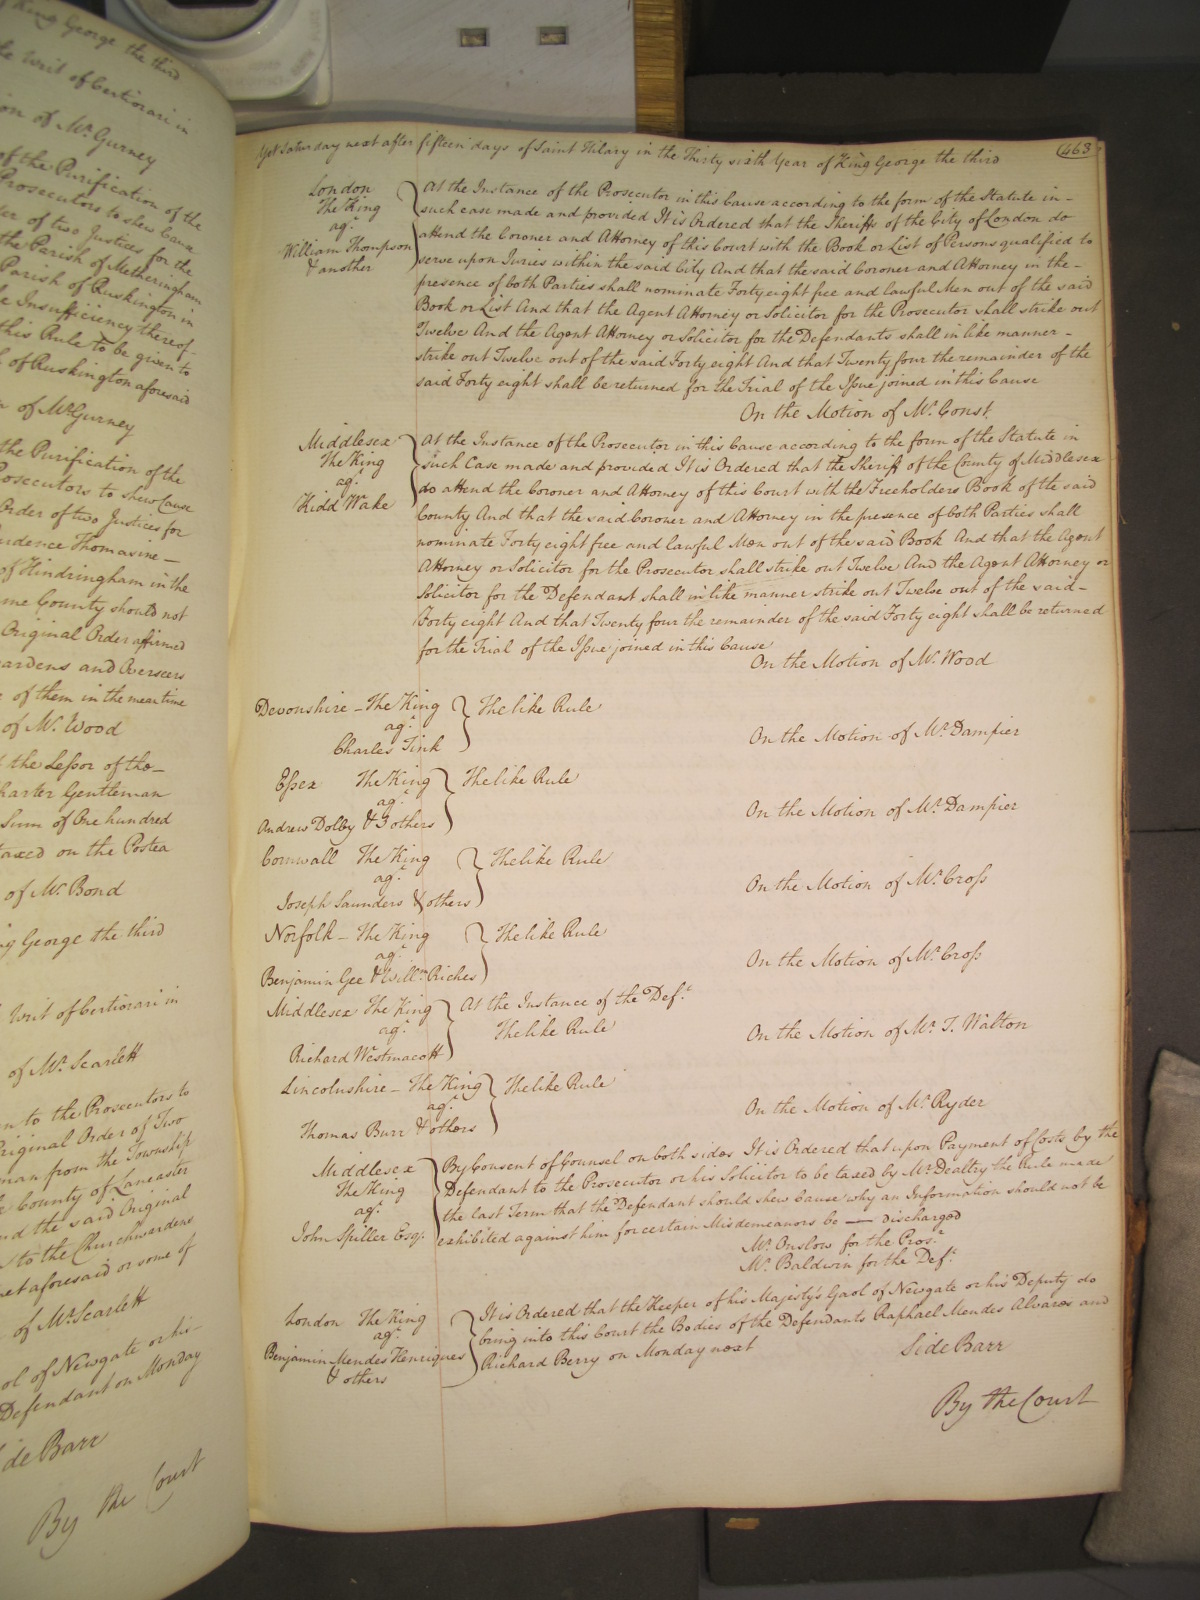 King George the third
the Writ of Certiorari in
on of Mr. Gurney
of the Purification of the
Prosecutors to shew Cause
of two Justices for the
the Parish of Metheringham
Parish of Ruskington in
Insufficiency thereof
this Rule to be given to
of Ruskington aforesaid
of Mr. Gurney
the Purification of the
Prosecutors to shew Cause
Order of two Justices for
Thomasine —
of Hindringham in the
County should not
Original Order affirmed
and Overseers
of them in the mean time
of Mr. Wood
the Lessor of the —
Gentleman
Sum of One hundred
taxed on the Postea
of Mr. Bond
George the third
Writ of Certiorari in
of Mr. Scarlett
to the Prosecutors to
Original Order of Two
from the Township
County of Lancaster
and the said Original
to the Churchwardens
aforesaid or some of
of Mr. Scarlett
of Newgate or his —
Defendant on Monday
Side Barr
By the Court
Yet Saturday next after fifteen days of Saint Hilary in the Thirty sixth Year of King George the third
463
London
The King
agt.
William Thompson
& another
At the Instance of the Prosecutor in this Cause according to the form of the Statute in -
such case made and provided It is Ordered that the Sheriffs of the City of London do
attend the Coroner and Attorney of this Court with the Book or List of Persons qualified to
serve upon Juries within the said City And that the said Coroner and Attorney in the -
presence of both Parties shall nominate Forty eight free and lawful Men out of the said
Book or List And that the Agent Attorney or Solicitor for the Prosecutor shall strike out
Twelve And the Agent Attorney or Solicitor for the Defendants shall in like manner -
strike out Twelve out of the said Forty eight And that Twenty four the remainder of the
said Forty eight shall be returned for the Trial of the Issue joined in this Cause
On the Motion of Mr. Const.
Middlesex
The King
agt.
Kidd Wake
At the Instance of the Prosecutor in this Cause according to the form of the Statute in
such Case made and provided It is Ordered that the Sheriff of the County of Middlesex
do attend the Coroner and Attorney of this Court with the Freeholders Book of the said
County And that the said Coroner and Attorney in the presence of both Parties shall
nominate Forty eight free and lawful Men out of the said Book And that the Agent
Attorney or Solicitor for the Prosecutor shall strike out Twelve And the Agent Attorney or
Solicitor for the Defendant shall in like manner strike out Twelve out of the said -
Forty eight And that Twenty four the remainder of the said Forty eight shall be returned
for the Trial of the Issue joined in this Cause
On the Motion of Mr. Wood
Devonshire - The King
agt.
Charles Tink
The like Rule
On the Motion of Mr. Dampier
Essex The King
agt.
Andrew Dolby & 3 others
The like Rule
On the Motion of Mr. Dampier
Cornwall The King
agt.
Joseph Saunders & others
The like Rule
On the Motion of Mr. Cross
Norfolk - The King
agt.
Benjamin Gee & Willm. Riches
The like Rule
On the Motion of Mr. Cross
Middlesex The King
agt.
Richard Westmacott
At the Instance of the Deft.
The like Rule
On the Motion of Mr. T. Walton
Lincolnshire - The King
agt.
Thomas Burr & others
The like Rule
On the Motion of Mr. Ryder
Middlesex
The King
agt.
John Spiller Esqr.
By Consent of Counsel on both sides It is Ordered that upon Payment of Costs by the
Defendant to the Prosecutor or his Solicitor to be taxed by Mr. Dealtry the Rule made
the last Term that the Defendant should shew Cause why an Information should not be
exhibited against him for certain Misdemeanors be — discharged
Mr. Onslow for the Prosr.
Mr. Baldwin for the Deft.
London The King
agt.
Benjamin Mendes Henriques
& others
It is Ordered that the Keeper of his Majesty's Gaol of Newgate or his Deputy do
bring into this Court the Bodies of the Defendants Raphael Mendes Alvares and
Richard Berry on Monday next
Side Barr
By the Court